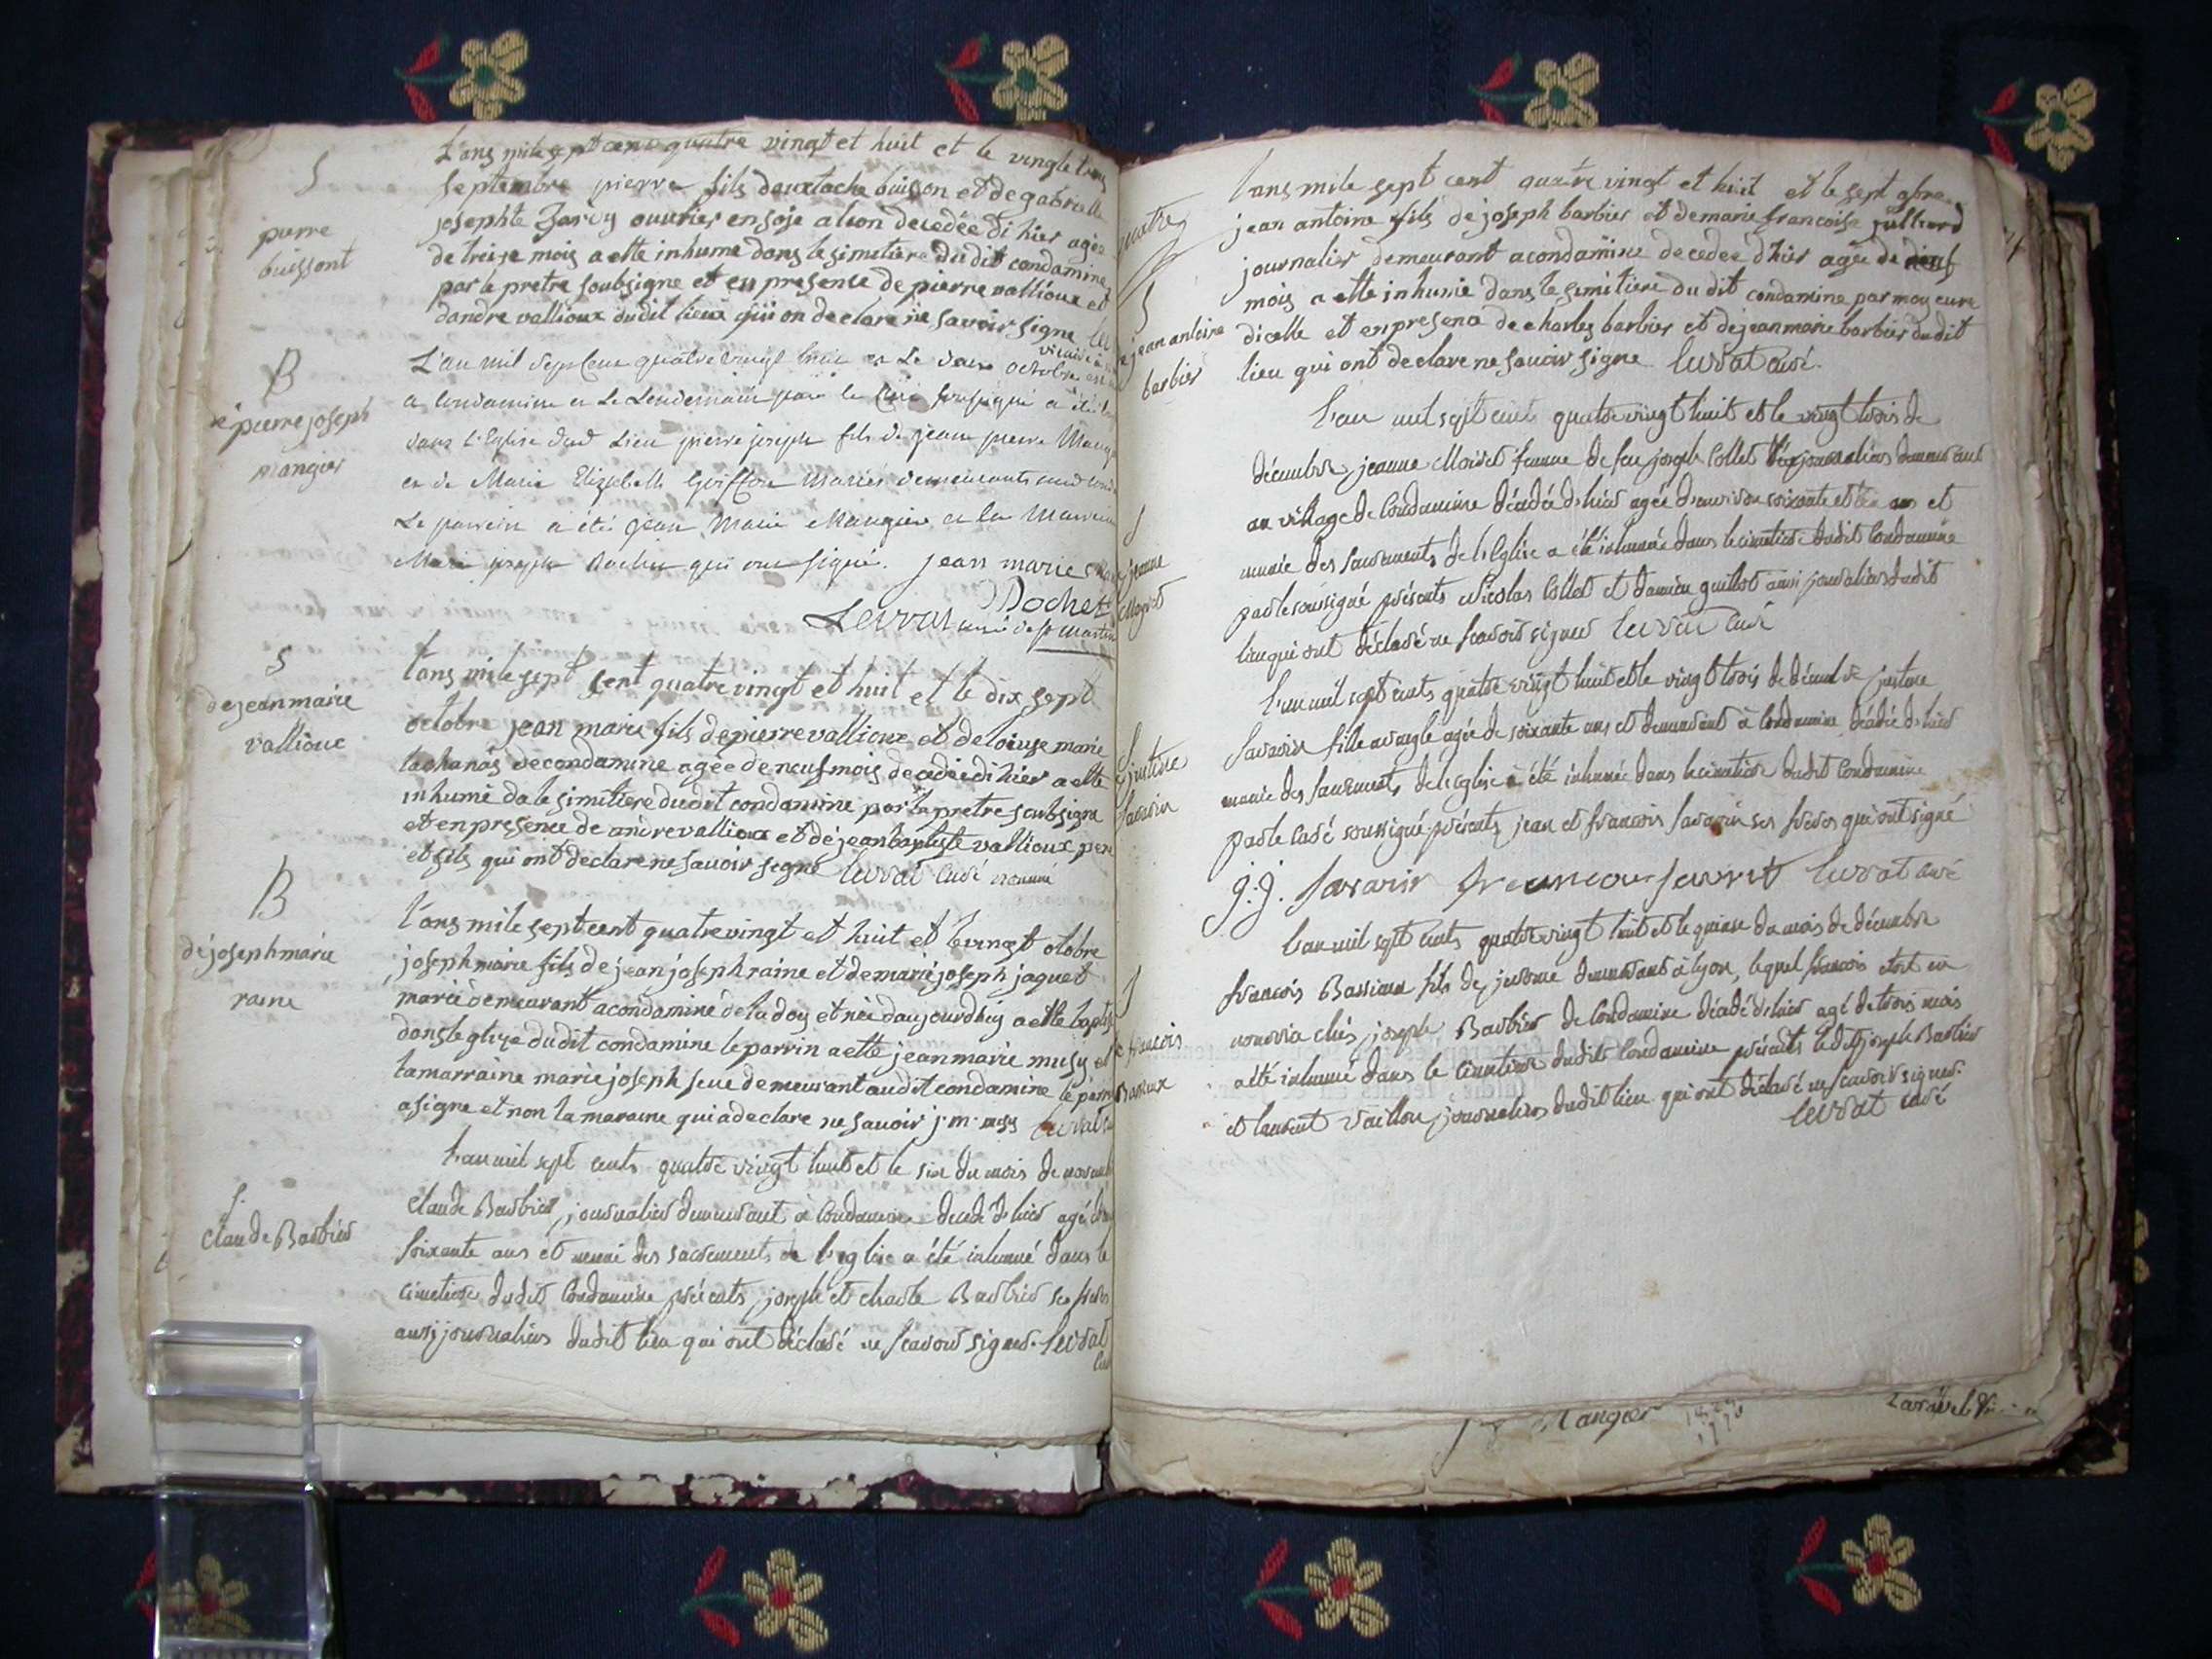 L'ans mile sept cens quatre vingt et huit et le vingt trois
S
septembre pierre fils deustache buisson et de gabrielle
pierre
buissont
josephte ouvrier en soje a lion decedée di hier agée
de treise mois a etté inhumé dans le simitiere du dit condamine
par le pretre soubsigne et en presense de pierre vallioux et
dandre vallioux dudit lieux qui on declare ne savoir signe
B
pierre joseph
mangier
L'an mil sept cent quatre vingt huit et le octobre
a condamine et le Lendemain par le Curé soussigné a été
dans L'Eglise dud Lieu pierre joseph fils de jean pierre
et de Marie Elizabeth Goiffon Mariés demeurants aud
Le parrein a été jean Marie Mangier et la Marreine
Marie joseph Rochet qui ont signé. jean marie
Rochet
Levrat curé de st martin
S
de jean marie
vallioux
l'ans mile sept sent quatre vingt et huit et le dix sept
octobre jean marie fils de pierre vallioux et de loeuse marie
tachanas de condamine agée de neuf mois decedée di hier a etté
inhumé da le simitiere dudit condamine par le pretre soubsigne
et en presence de andre vallioux et de jean baptiste vallioux pere
et fils qui ont declare ne savoir signé levrat curé
B
de joseph marie
raine
l'ans mile sept cent quatre vingt et huit et le vingt otobre
joseph marie fils de jean joseph raine et de marie joseph jaquet
marié demeurant a condamine de la doy et née daujourdhuy a etté baptise
dans leglize du dit condamine le parrin a etté jean marie musy et
la marraine marie joseph seve demeurant audit condamine le parrin
a signe et non la maraine qui a declare ne savoir j. m. musy levrat
l'an mil sept cents quatre vingt huit et le six du mois de novembre
f.
claude Barbier
claude Barbier, journalier demeurant à Condamine decedé d'hier agé
soixante ans et muni des sacrements de l'eglise a été inhumé dans le
cimetiere dudit Condamine présents joseph et charle Barbier ses freres
aussi journaliers dudit lieu qui ont déclaré ne scavoir signer. levrat
quatre
lans mile sept cent quatre vingt et huit et le sept 9bre
jean antoine fils de joseph barbier et de marie francoise julliard
journalier demeurant a condamine decedee d'hier agée de
S
jean antoine
barbier
mois a etté inhumé dans le simitiere du dit condamine par moy cure
dicelle et en presence de charles barbier et de jean marie barbier dudit
lieu qui ont declare ne savoir signe levrat curé.
l'an mil sept cents quatre vingt huit et le vingt trois de
décembre jeanne Moiret femme de feu joseph Collet journalier demeurant
au village de Condamine décédée d'hier agée d'environ soixante et ans et
S
jeanne
munie des sacrements de l'Eglise a été inhumée dans le cimetiere dudit Condamine
par le soussigné présents Nicolas Collet et Damien guillot aussi journaliers dudit
lieu qui ont déclaré ne scavoir signer levrat curé
l'an mil sept cents quatre vingt huit et le vingt trois de décembre justine
S
justine
savarin
Savarin fille aveugle agée de soixante ans et demeurant à Condamine décédée d'hier
munie des sacrements de l'eglise a été inhumée dans le cimetiere dudit Condamine
par le curé soussigné présents jean et françois savarin ses freres qui ont signé
j. j. Savarin levrat curé
l'an mil sept cents quatre vingt huit et le quinse du mois de décembre
S
francois
françois Bassieux fils de jerome demeurant à lyon, lequel francois etoit en
nourrice chés joseph Barbier de Condamine décédé d'hier agé de trois mois
a été inhumé dans le cimetiere dudit Condamine présents ledit joseph Barbier
et laurent journaliers dudit lieu qui ont déclaré ne scavoir signer.
levrat curé
Mangier